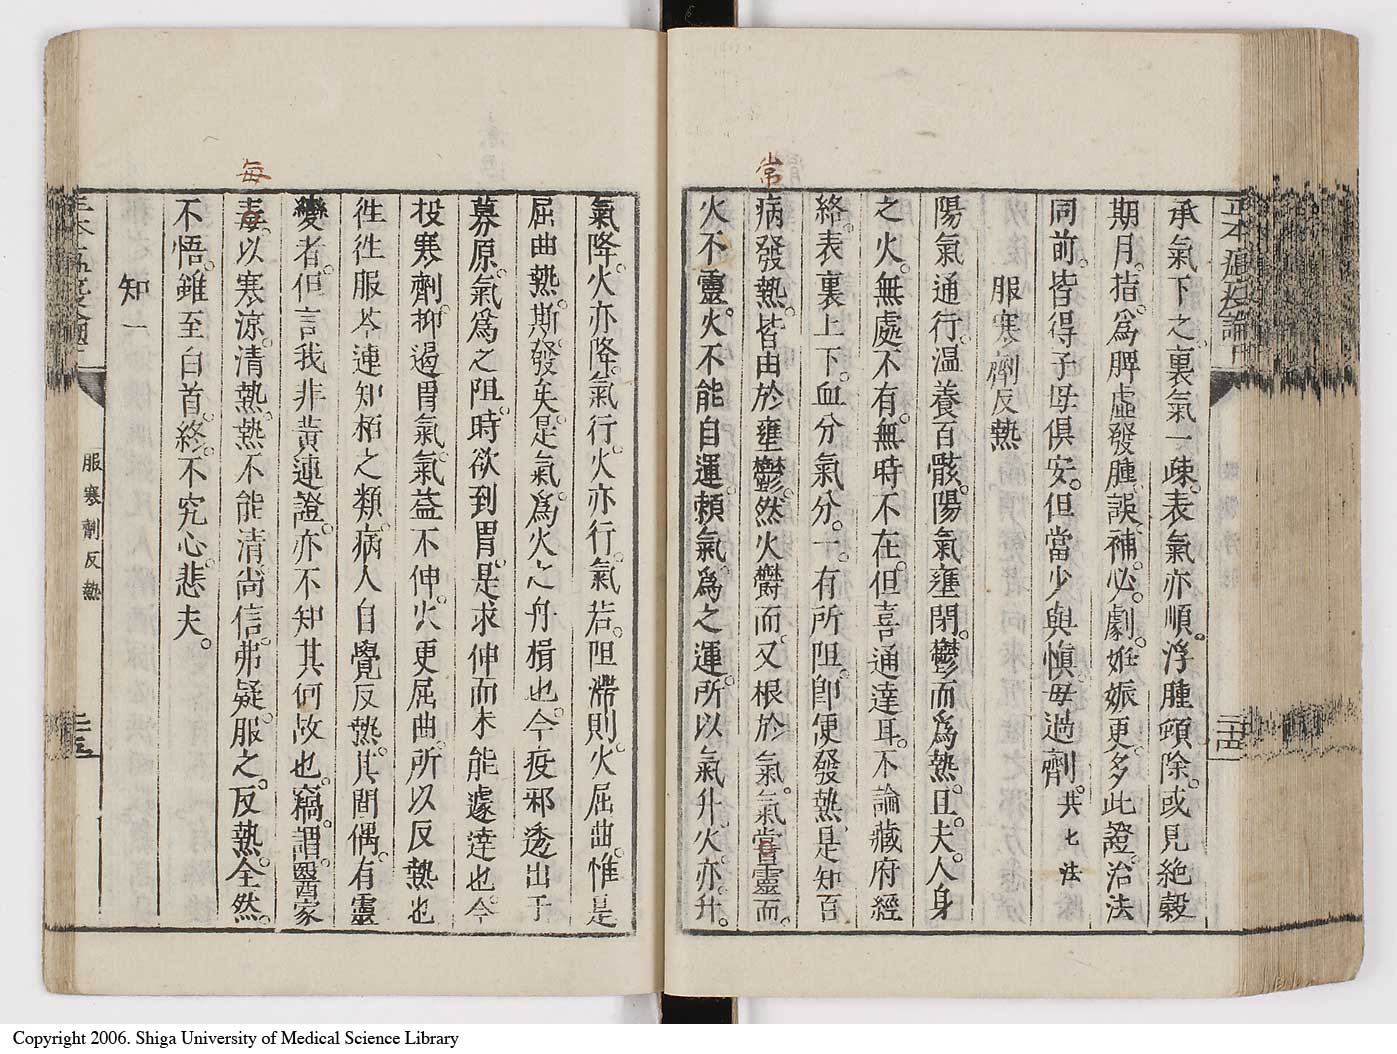 承氣下之。裏氣一疎。表氣亦順。浮腫頓除。或見絶穀
期月。指。爲脾虛發腫。誤補。必劇。姙娠更。多此證。治法
同前。皆得子母倶安。但當少與。愼毋過劑。共七法
服寒劑反熱
陽氣通行。温養百骸。陽氣壅閉。鬱而爲熱。且。夫。人身
之火。無處不有。無時不在。但喜通達耳。不論藏府經
絡。表裏上下。血分氣分。一。有所阻。卽便發熱。是知百
病發熱。皆由於壅鬱。然火鬱而。又根於氣。氣嘗靈而。
火不靈。火不能自運。頼氣。爲之運。所以氣升。火。亦。升。
氣降。火亦降。氣行。火亦行。氣若。阻滯。則。火屈曲。惟是
屈曲熱。斯。發矣。是氣。爲火之舟楫也。今疫邪透出于
募原。氣爲之阻。時。欲到胃。是求伸而未能遽達也。今
投寒劑。抑遏胃氣。氣益不伸。火更屈曲。所以反熱也
徃徃服芩連知栢之類。病人自覺反熱。其間偶。有靈
變者。但言我非黄連證。亦不知其何故也。竊。謂。醫家
毒。以寒涼。清熱。熱不能清。尚信。弗疑。服之。反熱。全然。
不悟。雖至白首。終。不究心。悲夫。
知一
常
毎
正本瘟疫論
二十四
服寒劑反熱
二十五
Copyright 2006. Shiga University of Medical Science Library